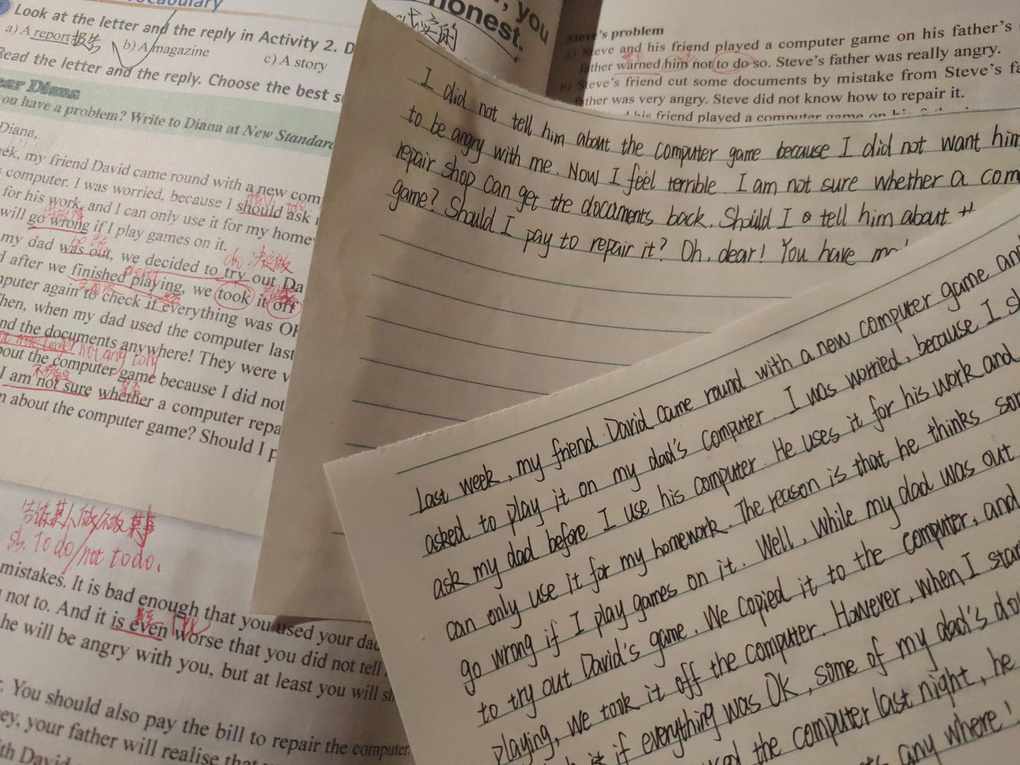 Vocabulary
Look at the letter and the reply in Activity 2. D
a) A report 报告 b) A magazine
c) A story
Read the letter and the reply. Choose the best s
ear Diana
ou have a problem? Write to Diana at New Standard
Diana,
eek, my friend David came round with a new com
computer. I was worried, because I should ask
for his work, and I can only use it for my home
will go wrong if I play games on it.
my dad was out, we decided to try out Da
d after we finished playing, we took it off
mputer again to check if everything was OK
hen, when my dad used the computer last
nd the documents anywhere! They were v
not any
bout the computer game because I did not
I am not sure whether a computer repa
n about the computer game? Should I p
告诉某人做/不做某事
sb. To do/not to do.
mistakes. It is bad enough that you used your dad
not to. And it is even worse that you did not tell
he will be angry with you, but at least you will s
. You should also pay the bill to repair the computer
ey, your father will realise that
ith David
, you
honest.
Steve's problem
Steve and his friend played a computer game on his father's
father warned him not to do so. Steve's father was really angry.
Steve's friend cut some documents by mistake from Steve's fa
father was very angry. Steve did not know how to repair it.
his friend played a computer game on
I did not tell him about the computer game because I did not want him
to be angry with me. Now I feel terrible I am not sure whether a com
repair shop can get the documents back. Should I tell him about th
game? Should I pay to repair it? Oh, dear! You have
Last week, my friend David came round with a new computer game and
asked to play it on my dad's computer. I was worried, because I sh
ask my dad before I use his computer. He uses it for his work and
can only use it for my homework. The reason is that he thinks som
go wrong if I play games on it. Well, while my dad was out
to try out David's game. We copied it to the computer, and
playing, we took it off the computer. However, when I star
if everything was OK, some of my dad's do
the computer last night, he
any where!